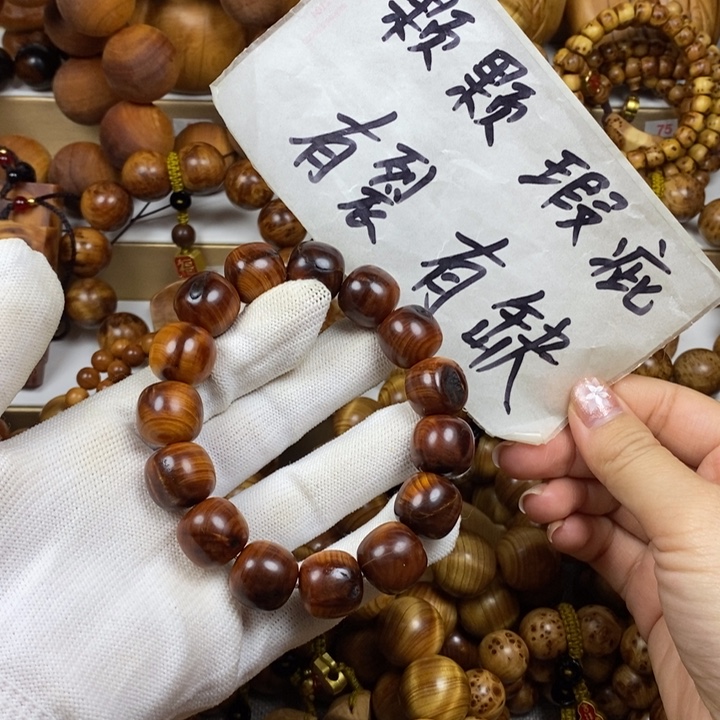 颗颗瑕疵
有裂有缺
75